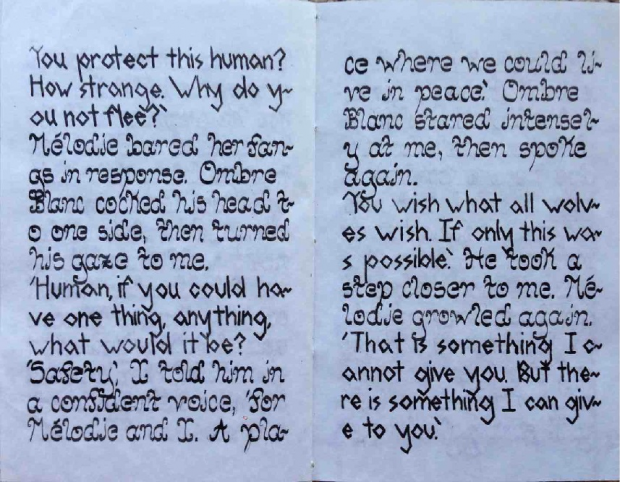 You protect this human?
How strange. Why do y-
ou not flee?'
Mélodie bared her fan-
gs in response. Ombre
Blanc cocked his head t-
o one side, then turned
his gaze to me.
'Human, if you could ha-
ve one thing, anything,
what would it be?
'Safety', I told him in
a confident voice, 'for
Mélodie and I. A pla-
ce where we could li-
ve in peace.' Ombre
Blanc stared intensel-
y at me, then spoke
again.
'You wish what all wolv-
es wish. If only this wa-
s possible.' He took a
step closer to me. Mé-
lodie growled again.
'That is something I c-
annot give you. But the-
re is something I can giv-
e to you.'